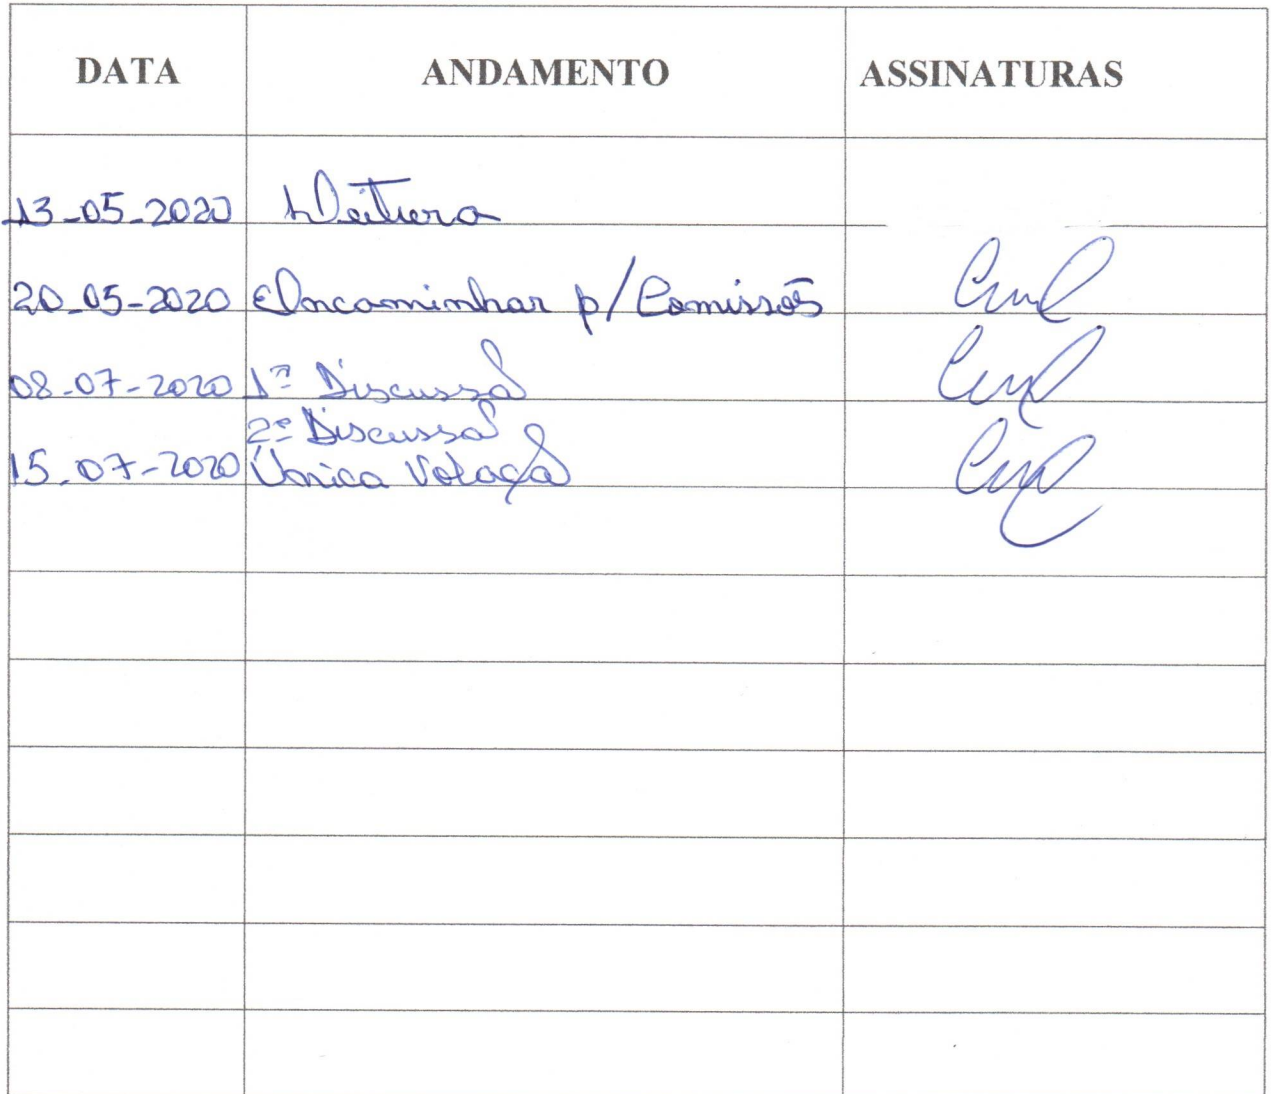 DATA ANDAMENTO ASSINATURAS
13-05-2020 Leitura
20-05-2020 Encaminhar p/ Comissões
08-07-2020 1ª Discussão
2ª Discussão
15-07-2020 Única Votação